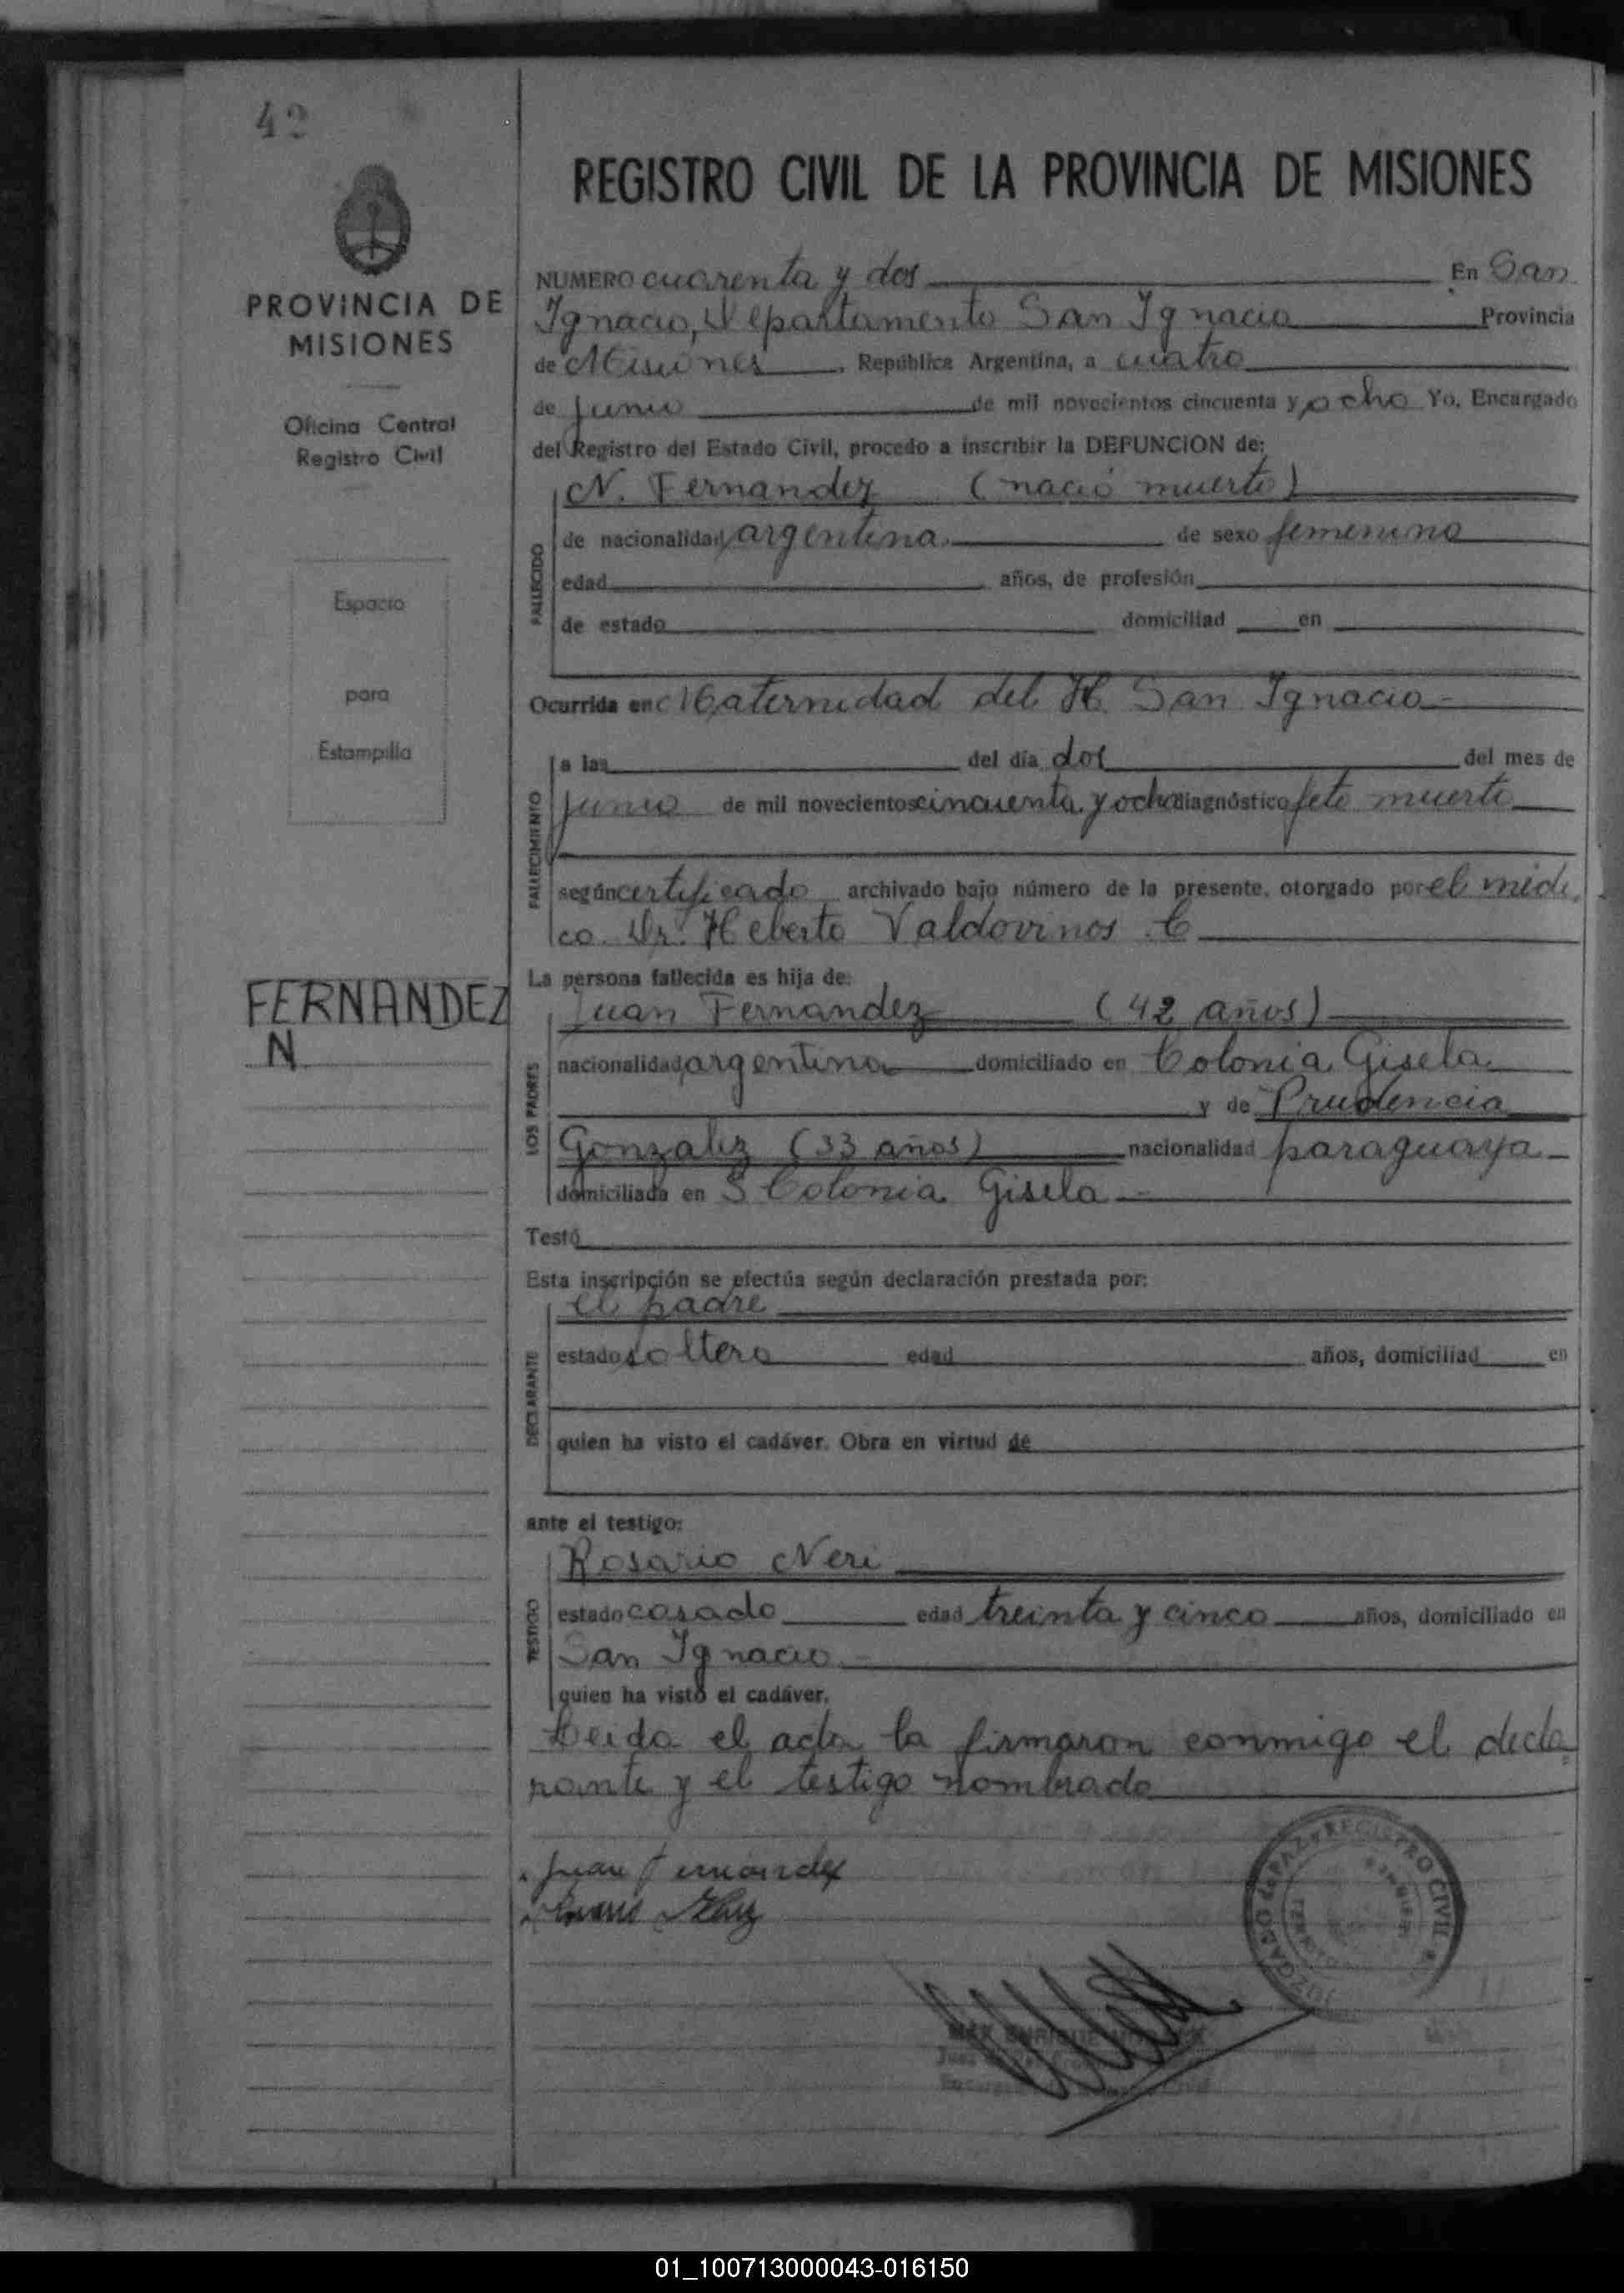 42
PROVINCIA DE
MISIONES
Oficina Central
Registro Civil
Espacio
para
Estampilla
FERNANDEZ
N
REGISTRO CIVIL DE LA PROVINCIA DE MISIONES
NUMERO cuarenta y dos En San
Ignacio, Departamento San Ignacio Provincia
de Misiones, República Argentina, a cuatro
de junio de mil novecientos cincuenta y ocho Yo, Encargado
del Registro del Estado Civil, procedo a inscribir la DEFUNCION de:
N. Fernandez (nació muerto)
FALLECIDO
de nacionalidad argentina de sexo femenino
edad años, de profesión
de estado domiciliad en
Ocurrida en Maternidad del H. San Ignacio-
FALLECIMIENTO
a las del día dos del mes de
junio de mil novecientos cincuenta y ocho diagnóstico feto muerto
según certificado archivado bajo número de la presente, otorgado por el médi
co. Dr. Heberto Valdovinos C
La persona fallecida es hija de:
LOS PADRES
Juan Fernandez (42 años)
nacionalidad argentina domiciliado en Colonia Gisela
y de Prudencia
Gonzalez (33 años) nacionalidad paraguaya-
domiciliada en Colonia Gisela-
Testó
Esta inscripción se efectúa según declaración prestada por:
DECLARANTE
el padre
estado soltero edad años, domiciliad en
quien ha visto el cadáver. Obra en virtud de
ante el testigo:
TESTIGO
Rosario Neri
estado casado edad treinta y cinco años, domiciliado en
San Ignacio.-
quien ha visto el cadáver.
Leida el acta la firmaron conmigo el decla
rante y el testigo nombrado
Juan Fernandez
JUZGADO de PAZ y REGISTRO CIVIL
MAX ENRIQUE
Juez
01_100713000043-016150